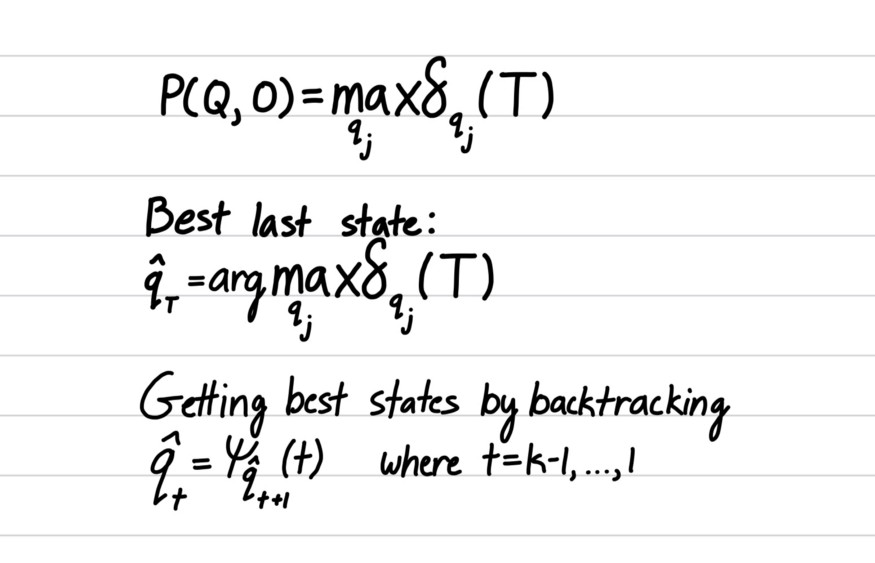 P(Q, O) = max_{q_j} δ_{q_j}(T)
Best last state:
q̂_T = arg max_{q_j} δ_{q_j}(T)
Getting best states by backtracking
q̂_t = Ψ_{q̂_{t+1}}(t) where t=k-1,...,1